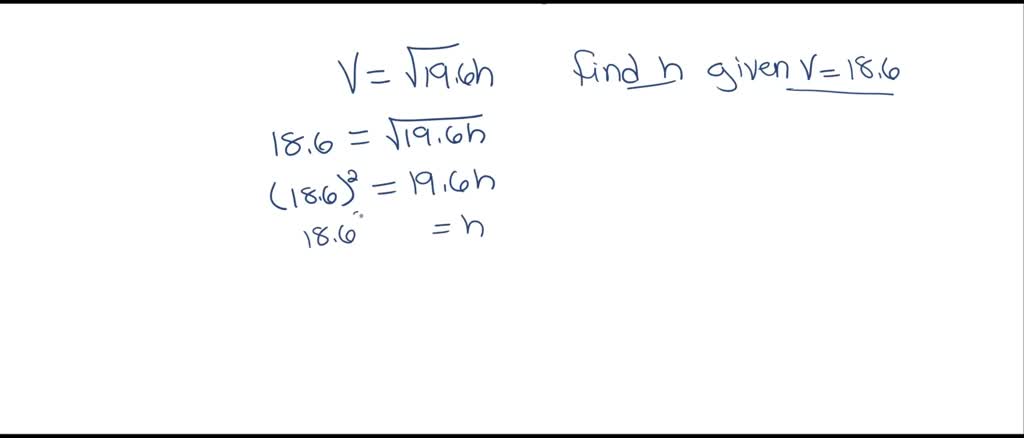 V = √19.6h find h given V = 18.6
18.6 = √19.6h
(18.6)² = 19.6h
18.6 = h